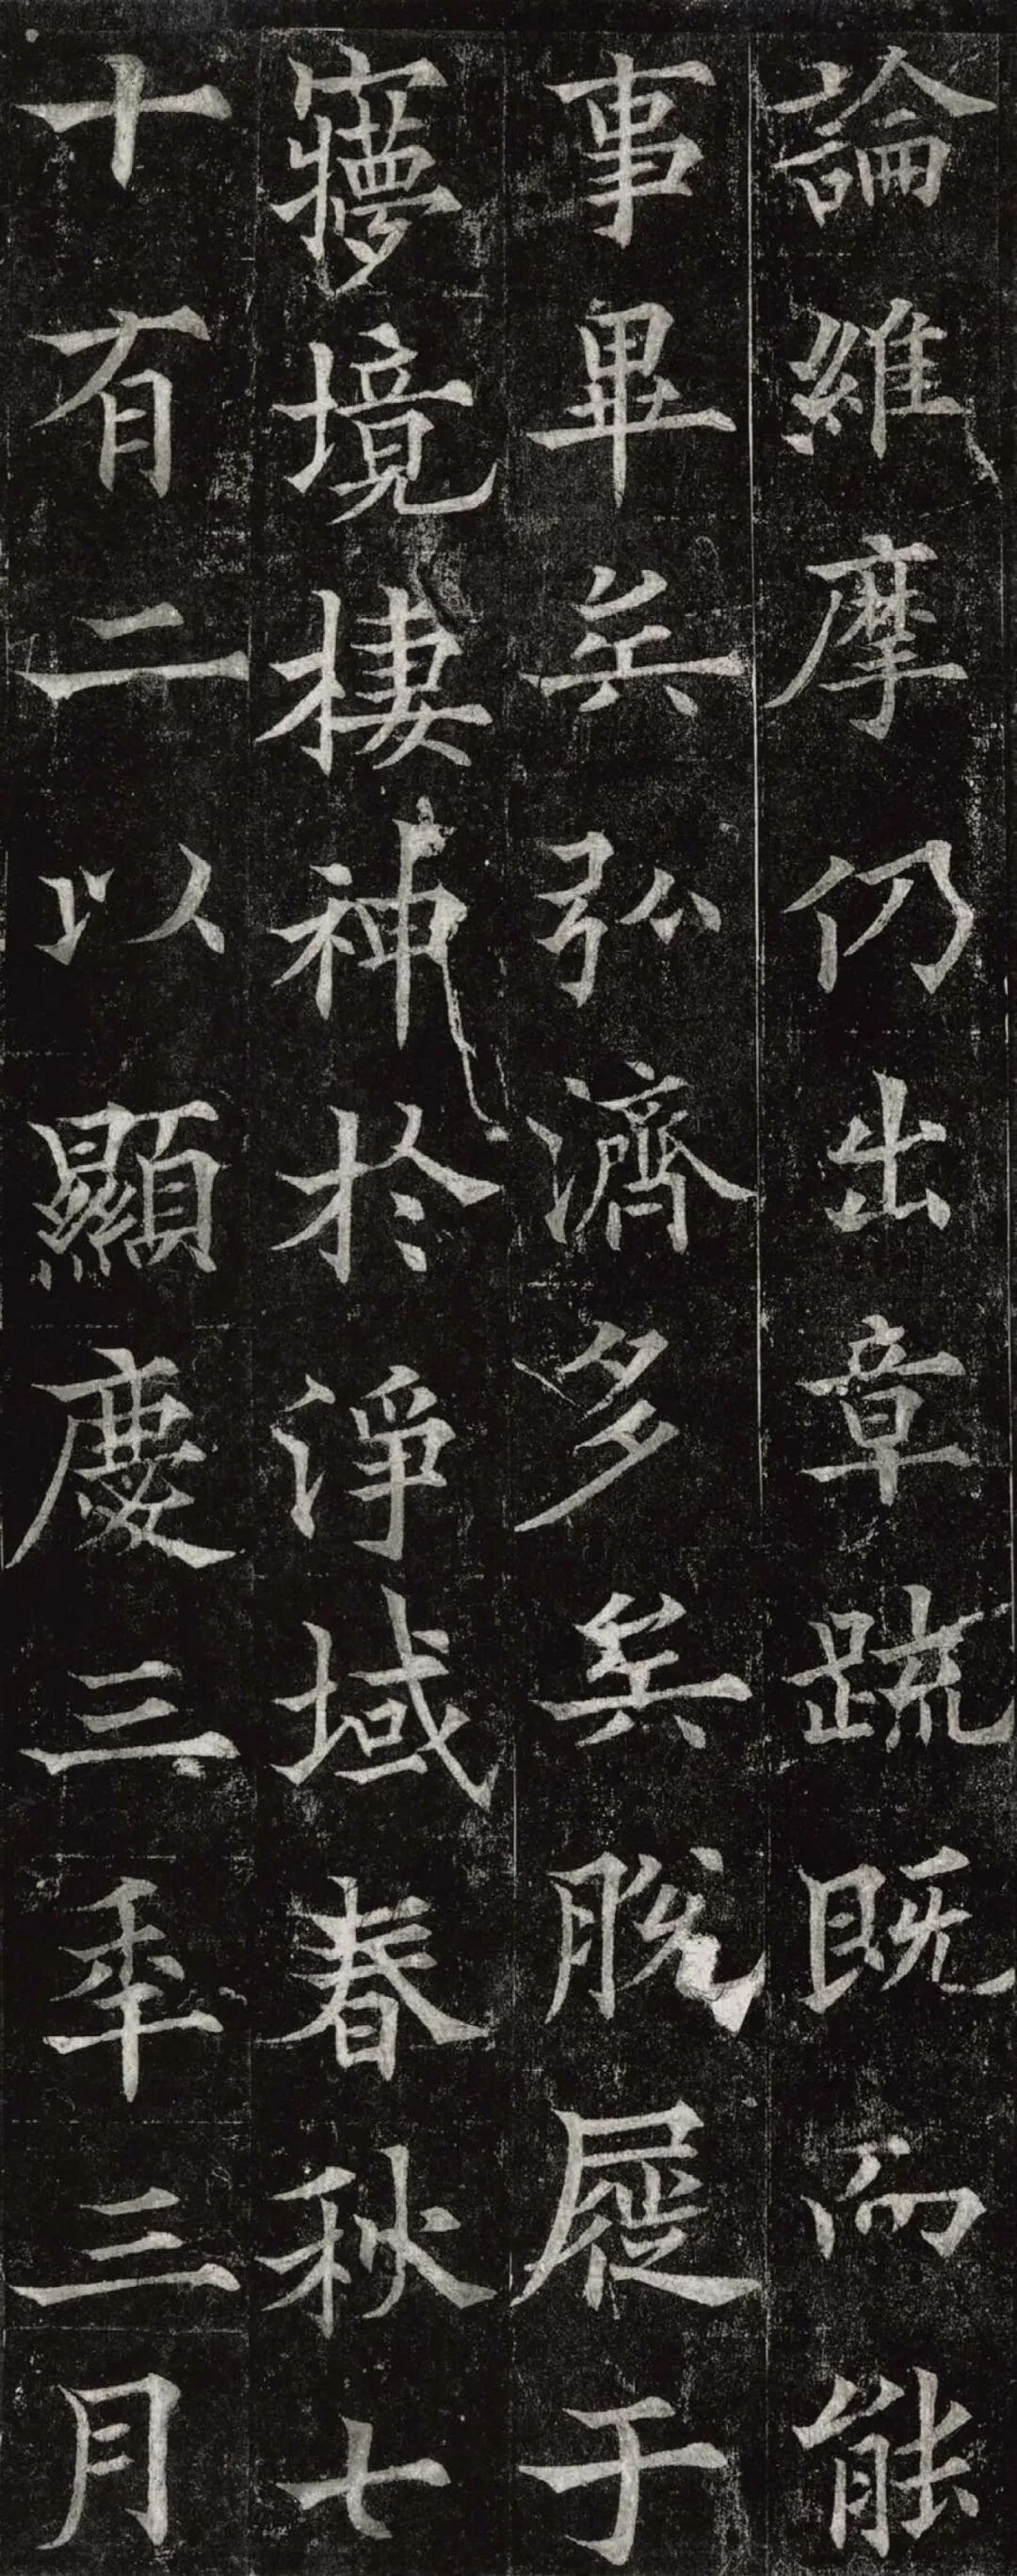 論維摩仍出章疏既而能
事畢矣弘濟多矣脫屣于
㝱境棲神於淨域春秋七
十有二以顯慶三年三月